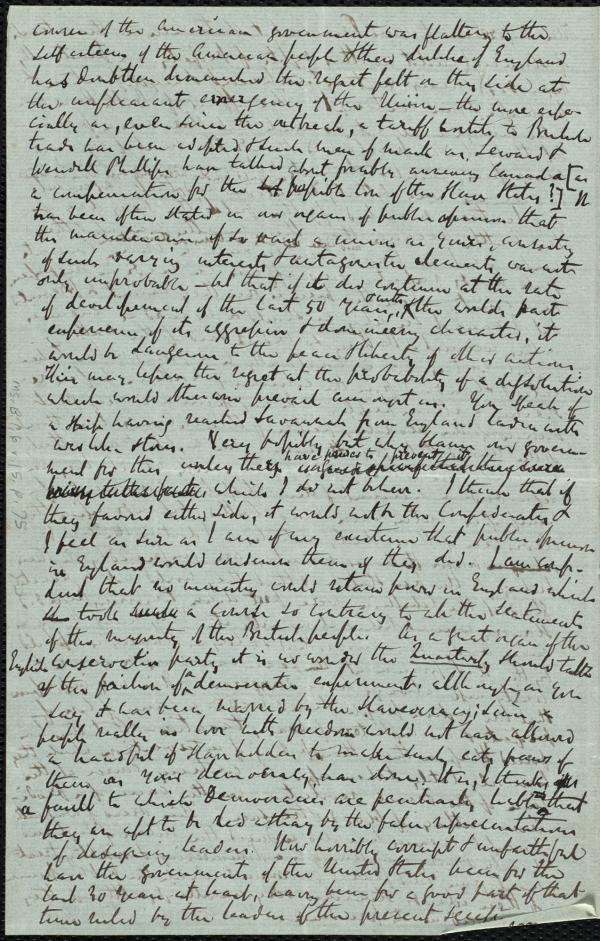 course of the American government was flattery to the
self esteem of the American people & their dislike of England
has doubtless diminished the regret felt on this side at
the unpleasant emergency of the Union – the more espe-
cially as, even since the outbreak, a tariff hostile to British
trade has been adopted & such men of mark as Seward &
Wendell Phillips have talked about forcibly annexing Canada [as
a compensation for the possible loss of the Slave States?] It
has been often stated in our organs of public opinion that
the maintenance of so vast a union as yours, consisting
of such varying interests & antagonistic elements, was not
only improbable – but that if it did continue at the rate
of development of the last 50 years, with the world's past
experience of its aggressive & domineering character, it
would be dangerous to the peace & liberty of other nations
This may lessen the regret at the probability of a dissolution
which would otherwise prevail amongst us. You speak of
a ship having reached Savannah from England laden with
warlike stores. Very possibly, but why blame our govern-
ment for this unless they have power to prevent it
which I do not believe. I think that if
they favored either side, it would not be the Confederates &
I feel as sure as I am of my existence that public opinion
in England would condemn them if they did. I am confi-
dent that no ministry could retain power in England which
took a course so contrary to all the sentiments
of the majority of the British people. As a great organ of the
English conservative party it is no wonder the Quarterly should talk
of the failure of a democratic experiment, although as you
say it has been marred by the Slaveocracy; Sure a
people really in love with freedom would not have allowed
a handful of Slaveholders to make such cats' paws of
them as your democracy has done. It is, I think,
a fault to which Democracies are peculiarly liable that
they are apt to be led astray by the false representations
of designing leaders. How horribly corrupt & unfaithful
have the governments of the United States been for the
last 30 years at least, having been for a good part of that
time ruled by the leaders of the present
Ms. B.1.6 v.15 p.75